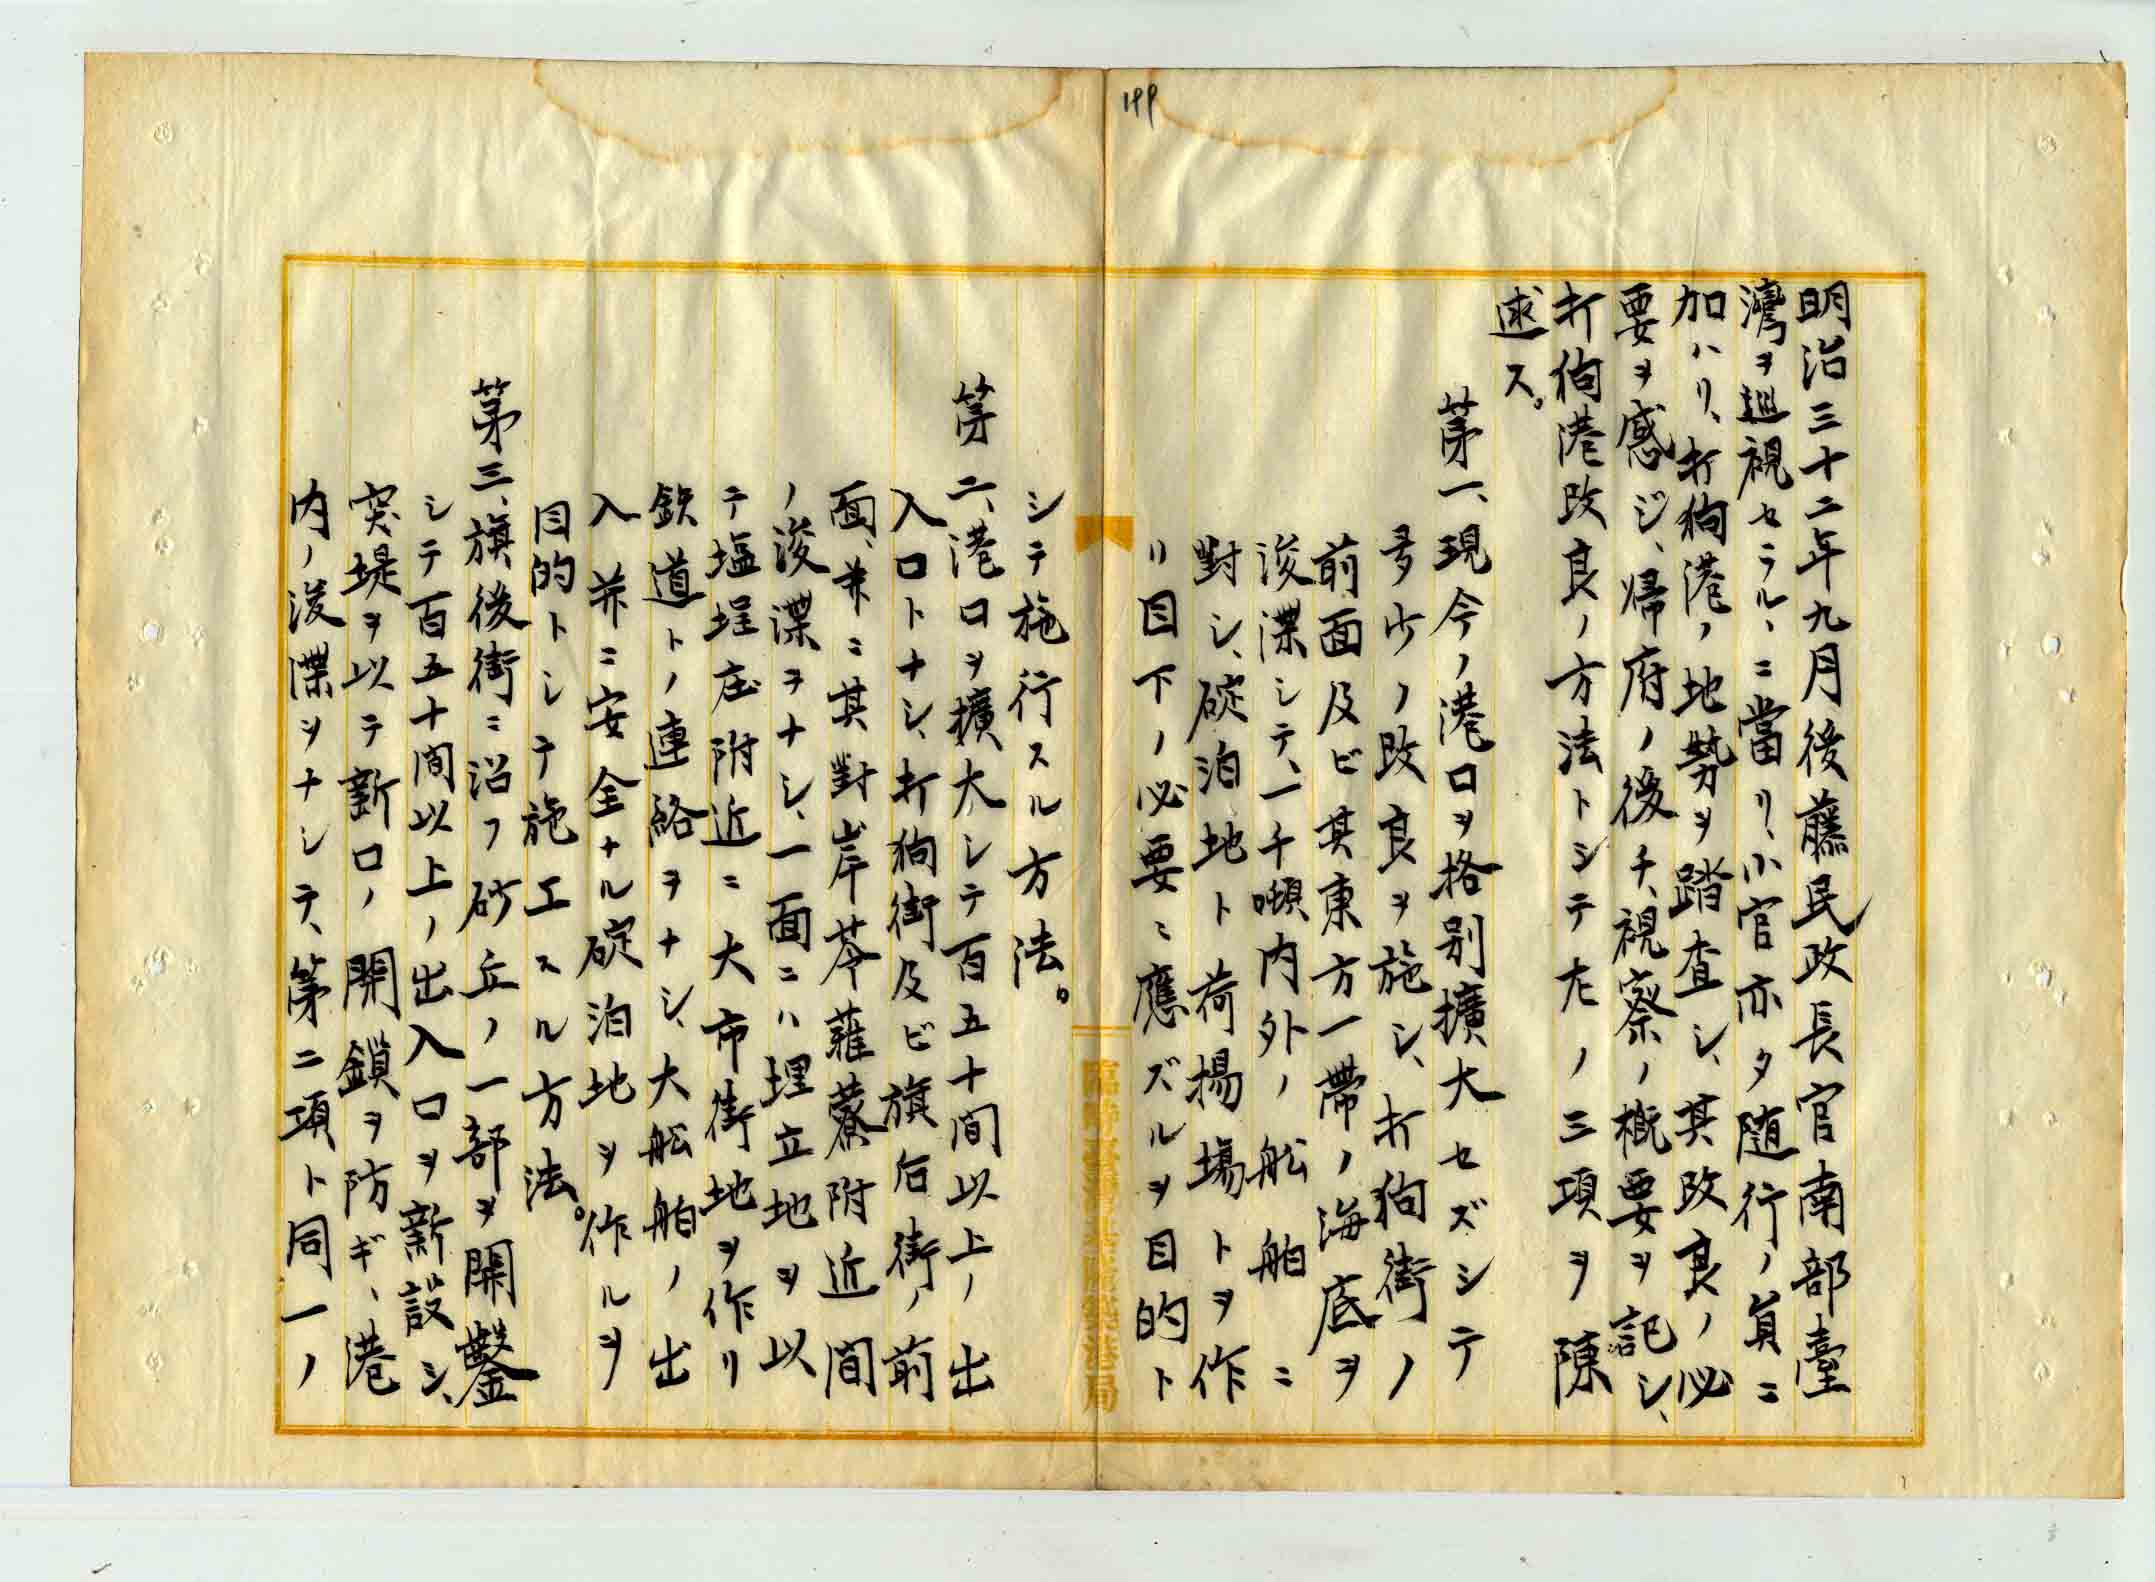 明治三十二年九月後藤民政長官南部臺
灣ヲ巡視セラルヽニ當リ、小官亦タ随行ノ員ニ
加ハリ、打狗港ノ地勢ヲ踏査シ、其改良ノ必
要ヲ感ジ、帰府ノ後チ、視察ノ概要ヲ記シ、
打狗港改良ノ方法トシテ左ノ三項ヲ陳
述ス。
第一、現今ノ港口ヲ格别擴大セズシテ
多少ノ改良ヲ施シ、打狗街ノ
前面及ビ其東方一帶ノ海底ヲ
浚渫シテ、一千噸内外ノ舩舶ニ
對シ、碇泊地ト荷揚場トヲ作
リ目下ノ必要ニ應ズルヲ目的ト
シテ施行スル方法。
第二、港口ヲ擴大シテ百五十間以上ノ出
入口トナシ、打狗街及ビ旗后街ノ前
面、并ニ其對岸苓蕹藔附近間
ノ浚渫ヲナシ、一面ニハ埋立地ヲ以
テ塩埕庄附近ニ大市街地ヲ作リ
鉄道トノ連絡ヲナシ、大舩舶ノ出
入并ニ安全ナル碇泊地ヲ作ルヲ
目的トシテ施工スル方法。
第三、旗後街ニ沿フ砂丘ノ一部ヲ開鑿
シテ百五十間以上ノ出入口ヲ新設シ、
突堤ヲ以テ新口ノ開鎖ヲ防ギ、港
内ノ浚渫ヲナシテ、第二項ト同一ノ